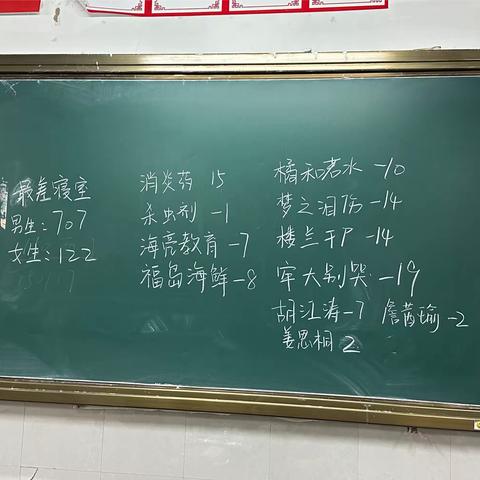 最差寝室
男生：707
女生：122
消炎药 15
杀虫剂 -1
海亮教育 -7
福岛海鲜 -8
橘和若水 -10
梦之泪伤 -14
楼兰干P -14
牢大别哭 -19
胡江涛 -7 詹茜瑜 -2
姜思桐 2